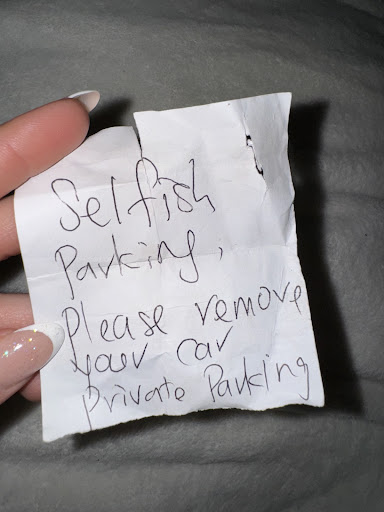 Selfish
Parking,
Please remove
your car
private Parking